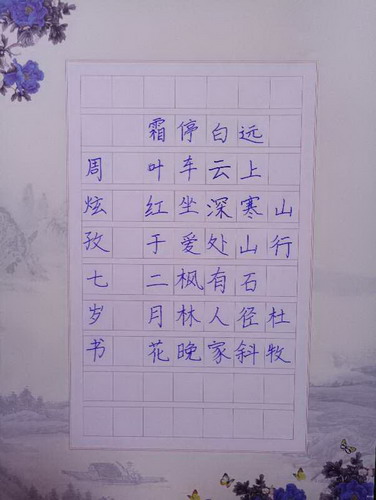 山行 杜牧
远上寒山石径斜
白云深处有人家
停车坐爱枫林晚
霜叶红于二月花
周炫孜七岁书